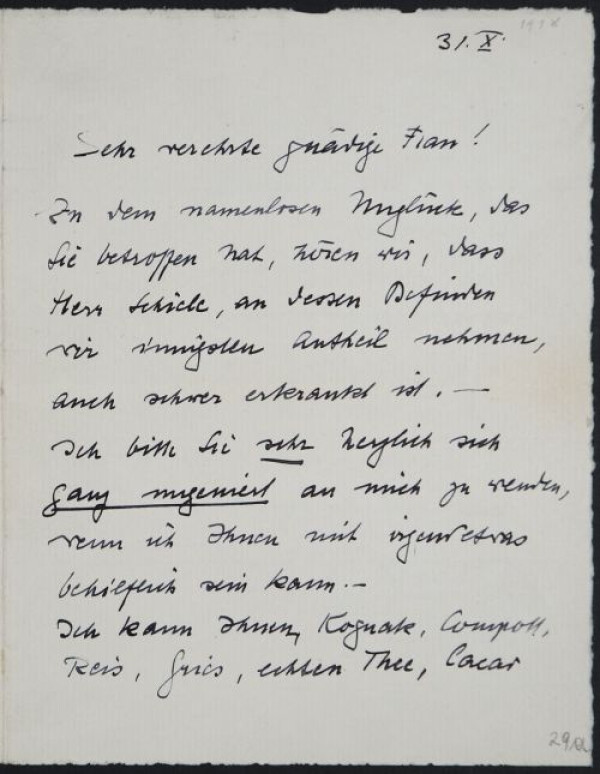 1918
31. X.
Sehr verehrte gnädige Frau!
Zu dem namenlosen Unglück, das
Sie betroffen hat, hören wir, dass
Herr Schiele, an dessen Befinden
wir innigsten Antheil nehmen,
auch schwer erkrankt ist. —
Ich bitte Sie sehr herzlich sich
ganz ungeniert an mich zu wenden,
wenn ich Ihnen mit irgendetwas
behilflich sein kann. —
Ich kann Ihnen, Kognak, Compott,
Reis, Gries, echten Thee, Cacao
29a